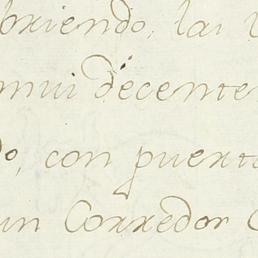 briendo, lai
mui decente
do, con puert
un Corredor